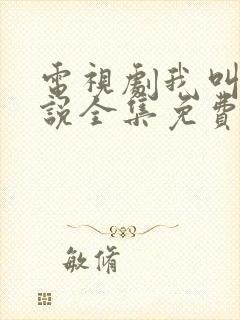 電視劇我叫
說全集免費
敏脩